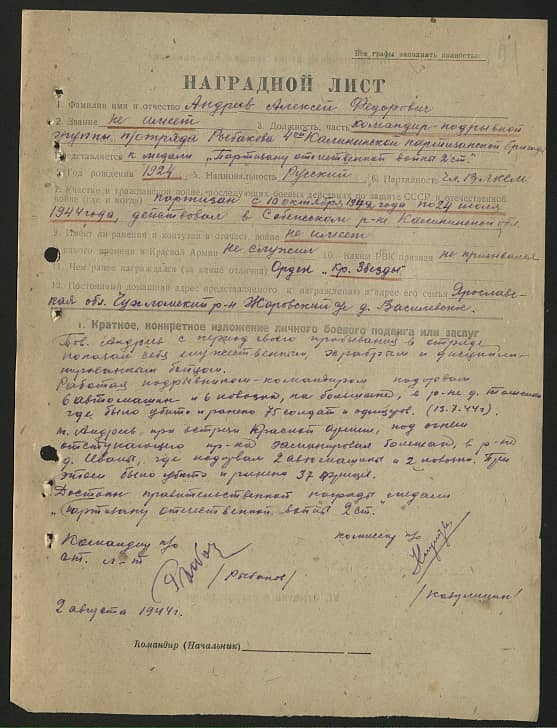 Все графы заполнять полностью.
НАГРАДНОЙ ЛИСТ
1. Фамилия имя и отчество Андреев Алексей Федорович
2. Звание не имеет 3. Должность, часть командир-подрывной
группы п/отряда Рыбакова 4ой Калининской партизанской бригады
Представляется к медали „Партизану отечественной войны 2 ст."
4. Год рождения 1924 5. Национальность Русский 6. Партийность чл. ВЛКСМ
7. Участие в гражданской войне, последующих боевых действиях по защите СССР и отечественной
войне (где и когда) партизан с 10 октября 1942 года по 24 июля
1944 года, действовал в Себежском р-не Калининской обл.
8. Имеет ли ранения и контузии в отечест. войне не имеет
9. С какого времени в Красной Армии не служил 10. Каким РВК призван не призывался
11. Чем ранее награжден (за какие отличия) Орден „Кр. Звезды"
12. Постоянный домашний адрес представляемого к награждению и адрес его семьи Ярославс-
кая обл. Чухломский р-н Жаровский с/с д. Василевское.
1. Краткое, конкретное изложение личного боевого подвига или заслуг
Тов. Андреев с период своего пребывания в отряде
показал себя мужественным, храбрым и дисципли-
нированным бойцом.
Работая подрывником-командиром подорвал
6 автомашин и 6 повозки, на большаке, в р-не д.
где было убито и ранено 75 солдат и офицеров. (13.7.44г.)
т. Андреев, при встречи Красной армии, под огнем
отступающего пр-ка заминировал большак, в р-не
д. Иваны, где подорвал 2 автомашины и 2 повозки. При
этом было убито и ранено 37 фрицев.
Достоин правительственной награды медали
„Партизану отечественной войны 2 ст."
Командир п/о
ст. л-т
/Рыбаков/
комиссар п/о
2 августа 1944г.
Командир (Начальник)